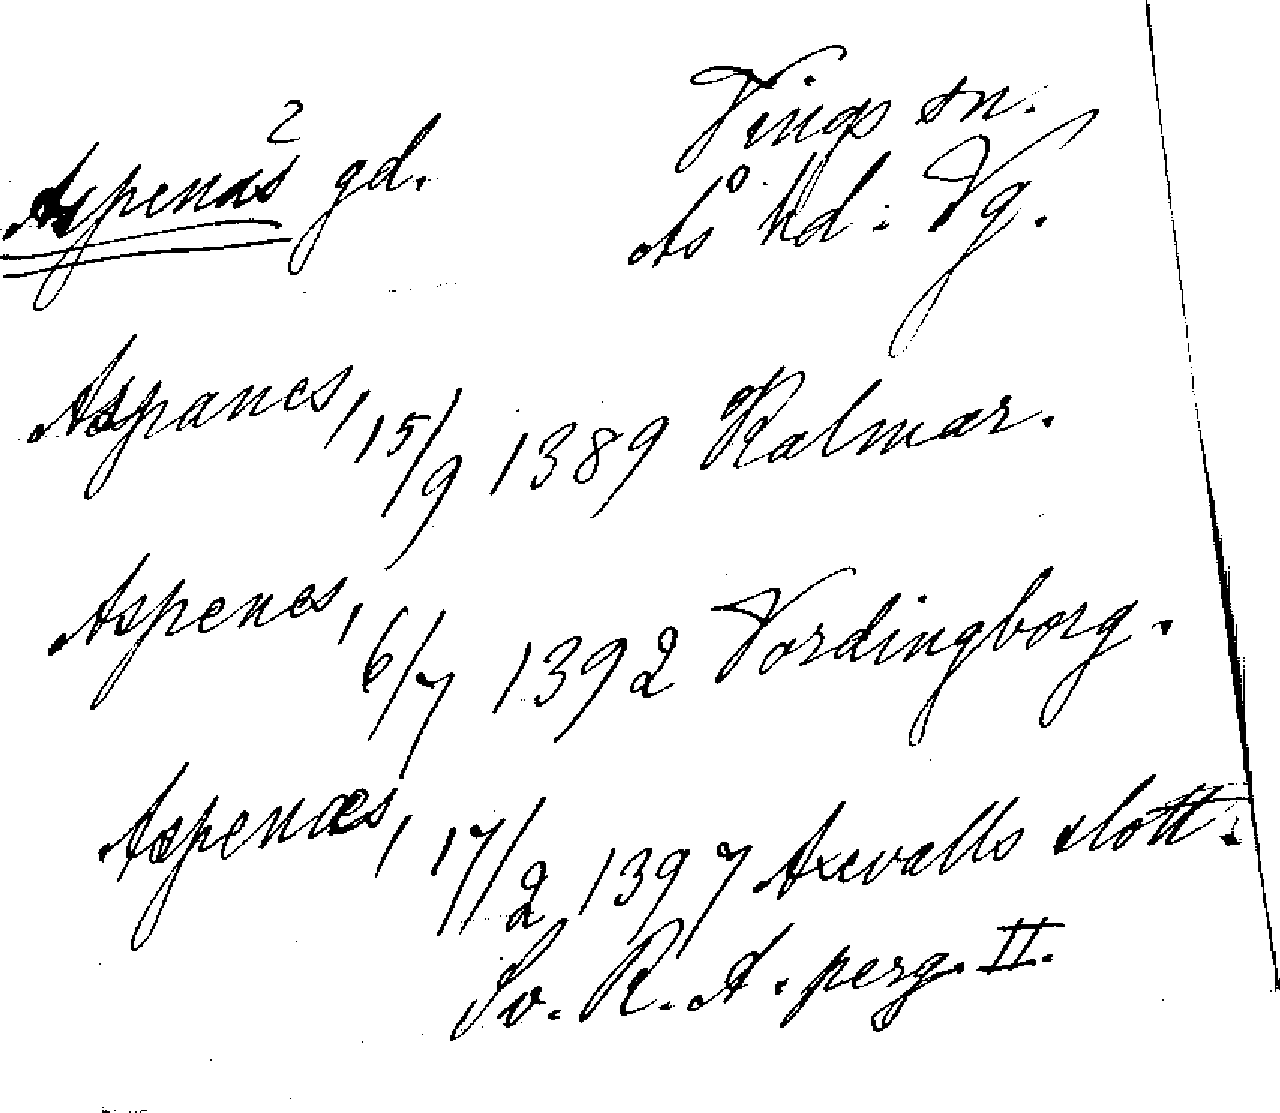 Aspenäs 2 gd.
Vings sn.
Ås hd. Vg.
Aspanes, 15/9 1389 Kalmar.
Aspenes, 6/7 1392 Vordingborg.
Aspenæs, 17/2 1397 Axevalls slott.
Sv. R. A. perg. II.